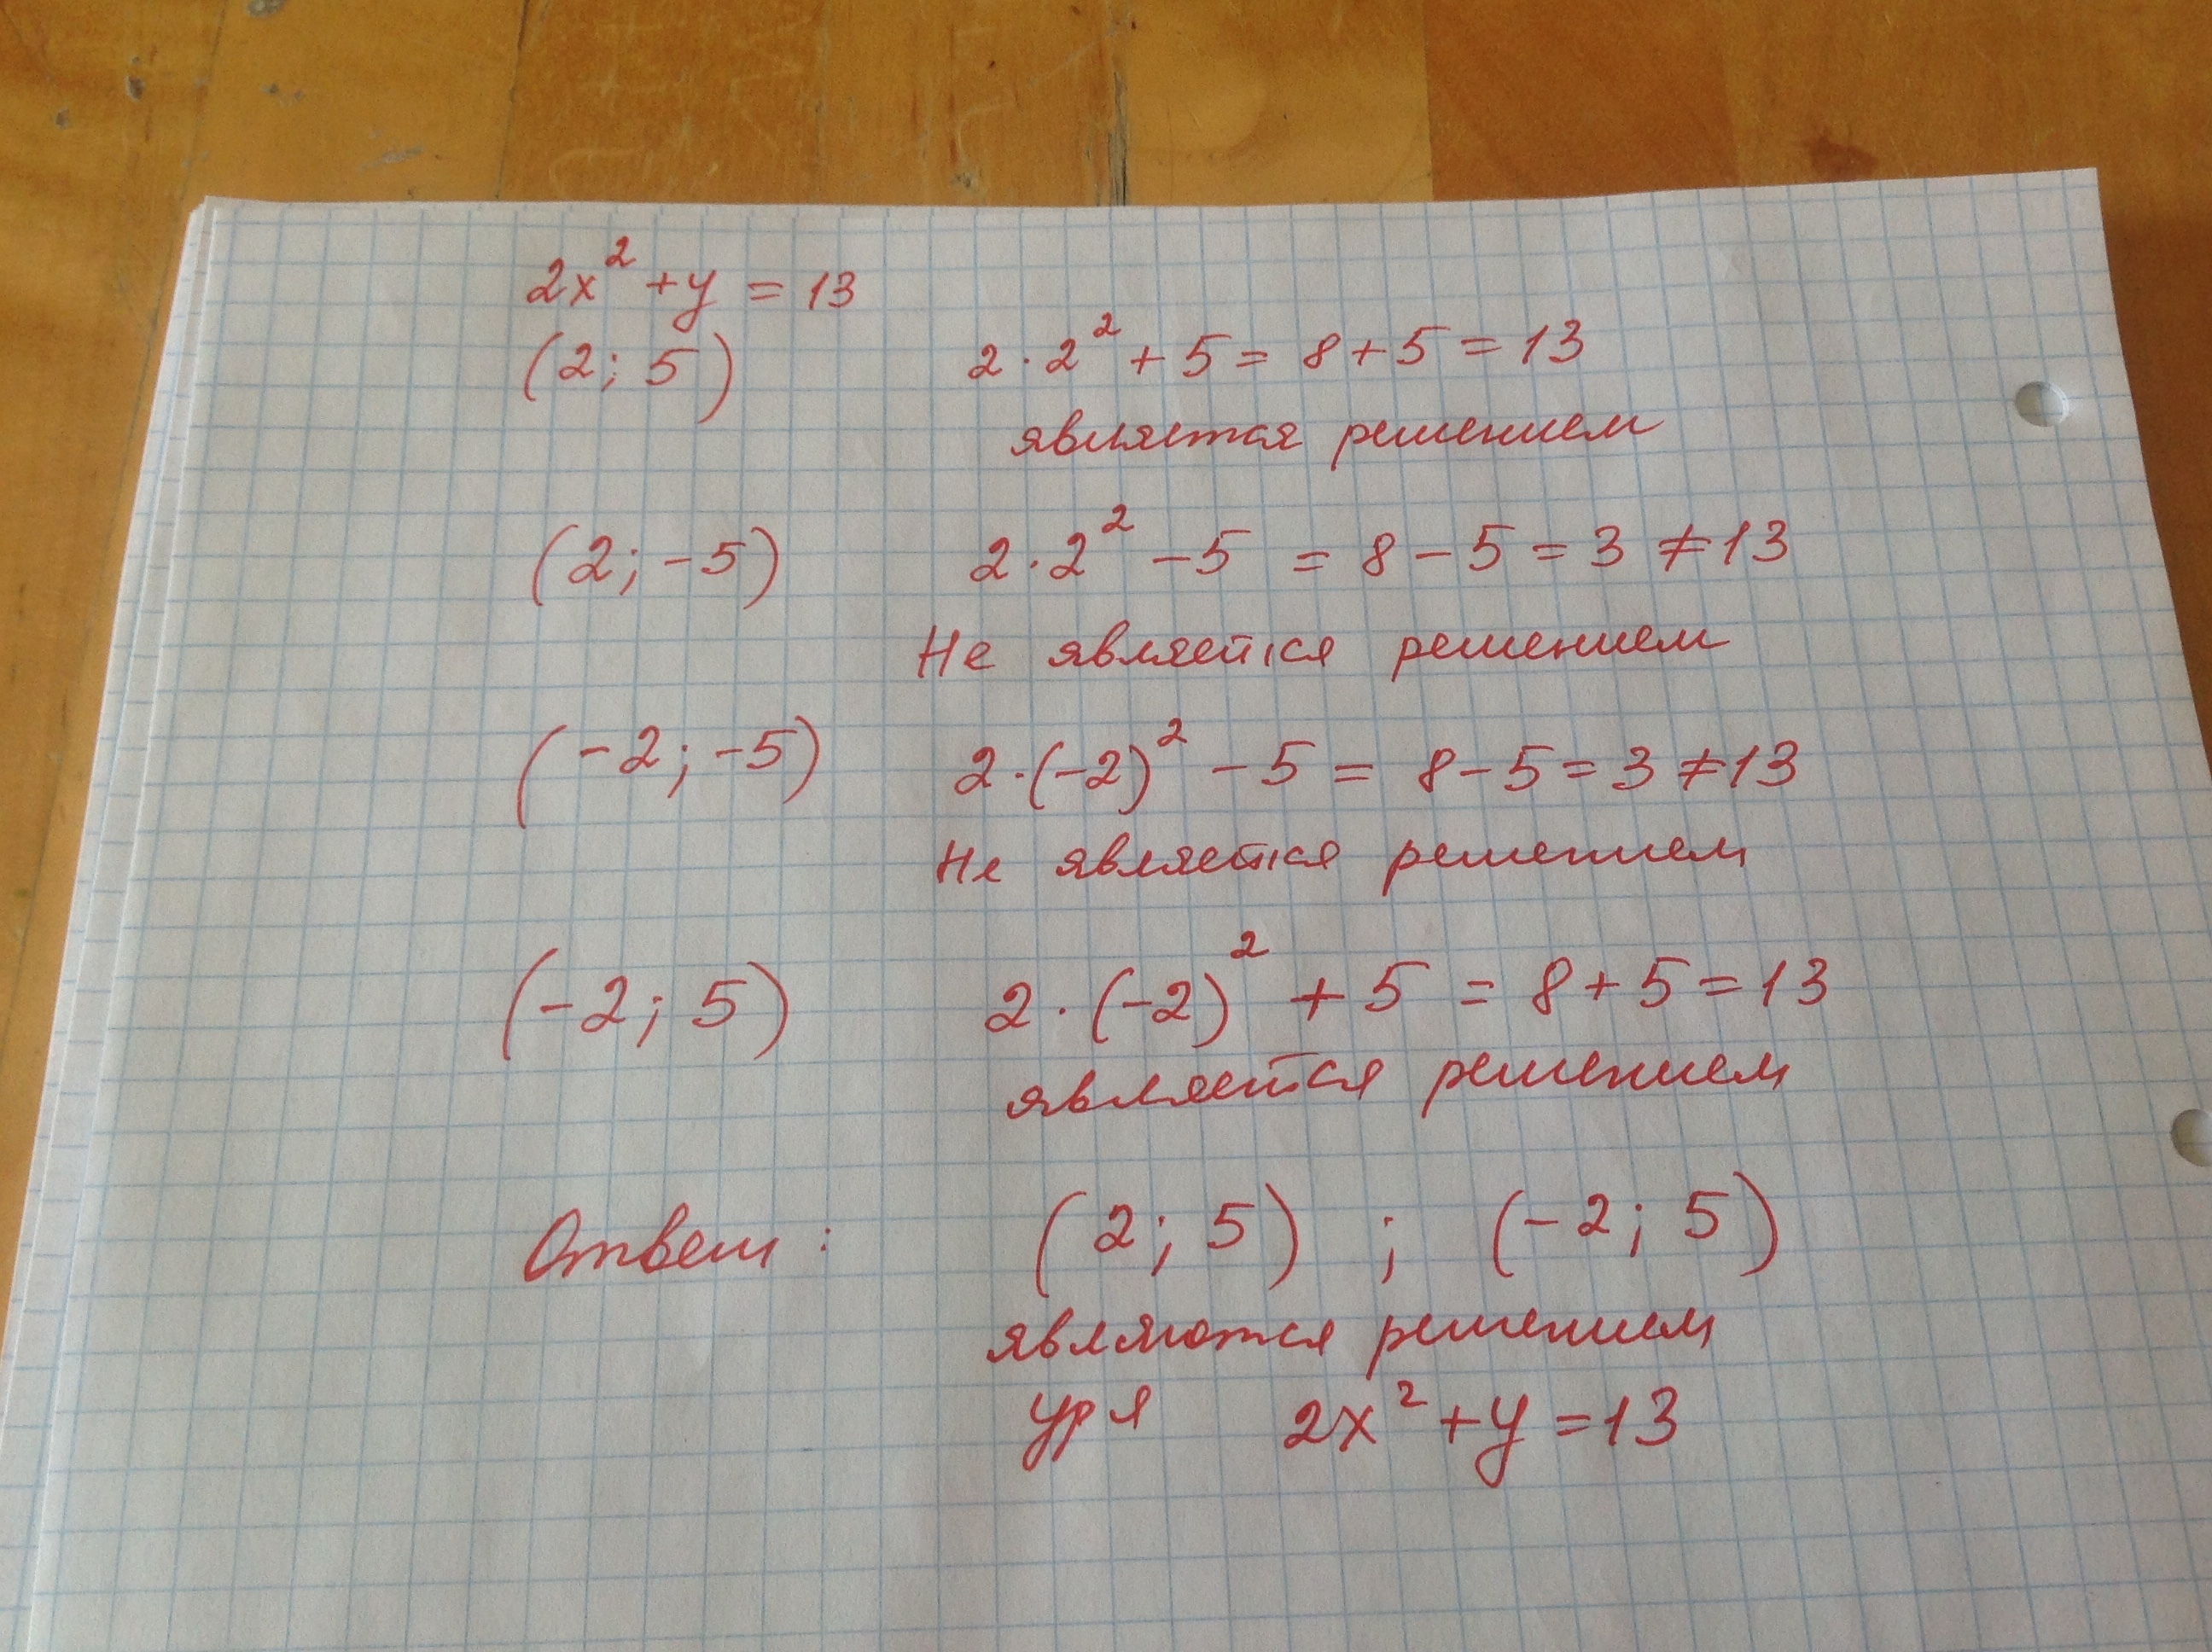 2x² + y = 13
(2; 5) 2 · 2² + 5 = 8 + 5 = 13
является решением
(2; -5) 2 · 2² - 5 = 8 - 5 = 3 ≠ 13
Не является решением
(-2; -5) 2 · (-2)² - 5 = 8 - 5 = 3 ≠ 13
Не является решением
(-2; 5) 2 · (-2)² + 5 = 8 + 5 = 13
является решением
Ответ: (2; 5) ; (-2; 5)
являются решением
ур я 2x² + y = 13